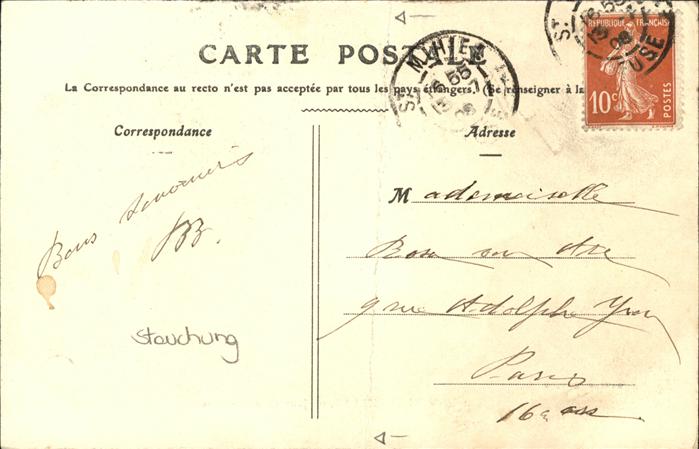 CARTE POSTALE
La Correspondance au recto n'est pas acceptée par tous les pays étrangers. (Se renseigner à la
Correspondance
Adresse
REPUBLIQUE FRANÇAISE
10c
POSTES
ST MIHIEL
MEUSE
Bons souvenirs
Mademoiselle
9 rue Adolphe Yvon
Paris
16e
Stauchung